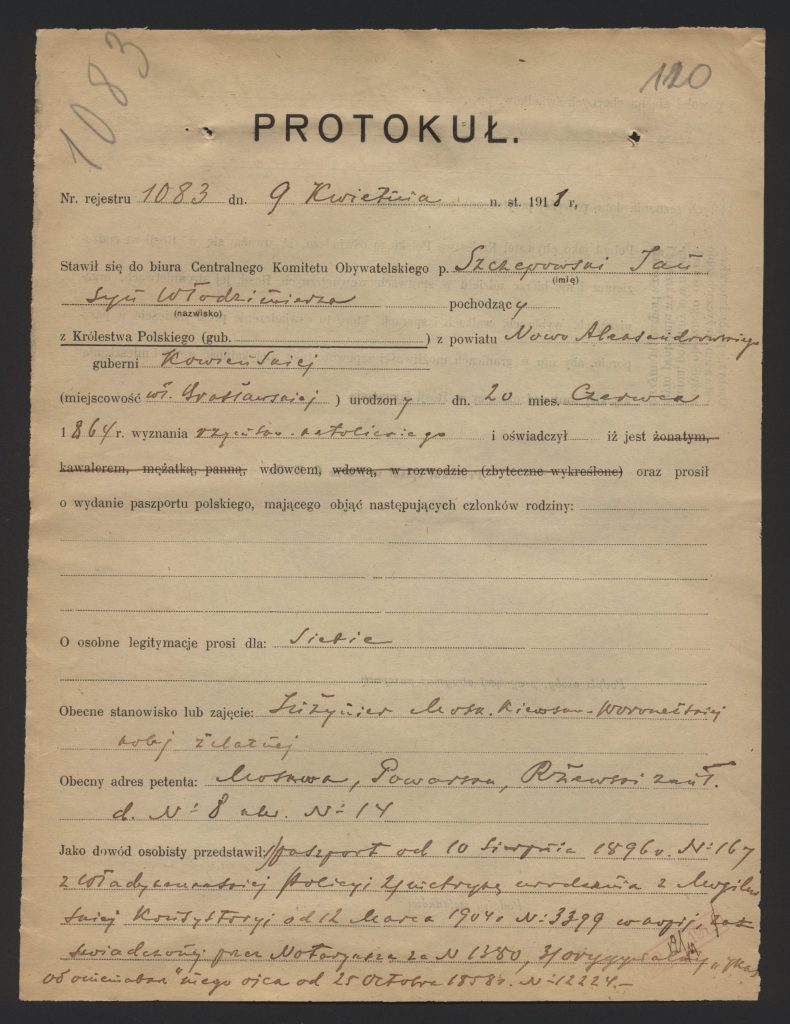 1083
120
PROTOKUŁ.
Nr. rejestru 1083 dn. 9 Kwietnia n. st. 1918 r,
Stawił się do biura Centralnego Komitetu Obywatelskiego p. Szczepowski Jan
(imię)
syn Włodzimierza pochodzący
(nazwisko)
z Królestwa Polskiego (gub. ) z powiatu Nowo Aleksandrowskiego
guberni Kowieńskiej
(miejscowość wł. Brasławskiej ) urodzony dn. 20 mies. Czerwca
1864 r. wyznania rzymsko-katolickiego i oświadczył iż jest żonatym,
kawalerem, mężatką, panną, wdowcem, wdową, w rozwodzie (zbyteczne wykreślone) oraz prosił
o wydanie paszportu polskiego, mającego objąć następujących członków rodziny:
O osobne legitymacje prosi dla: Siebie
Obecne stanowisko lub zajęcie: Inżynier Mosk. Kiewsko-Woroneżskiej
kolej żelaznej
Obecny adres petenta: Moskwa, Powarska, Rżewski zauł.
d. № 8 kw. № 14
Jako dowód osobisty przedstawił: paszport od 10 Sierpnia 1896 r. № 167
z Władykaukaskiej Policyi 2) metrykę urodzenia z Mogilew
skiej Konsystoryi od 12 Marca 1904 r № 3399 w kopji, zaś
świadczonej przez Notaryusza za N 1380, 3) oryginalny
ojca od 25 Octobra 1858 r. № 12224.—